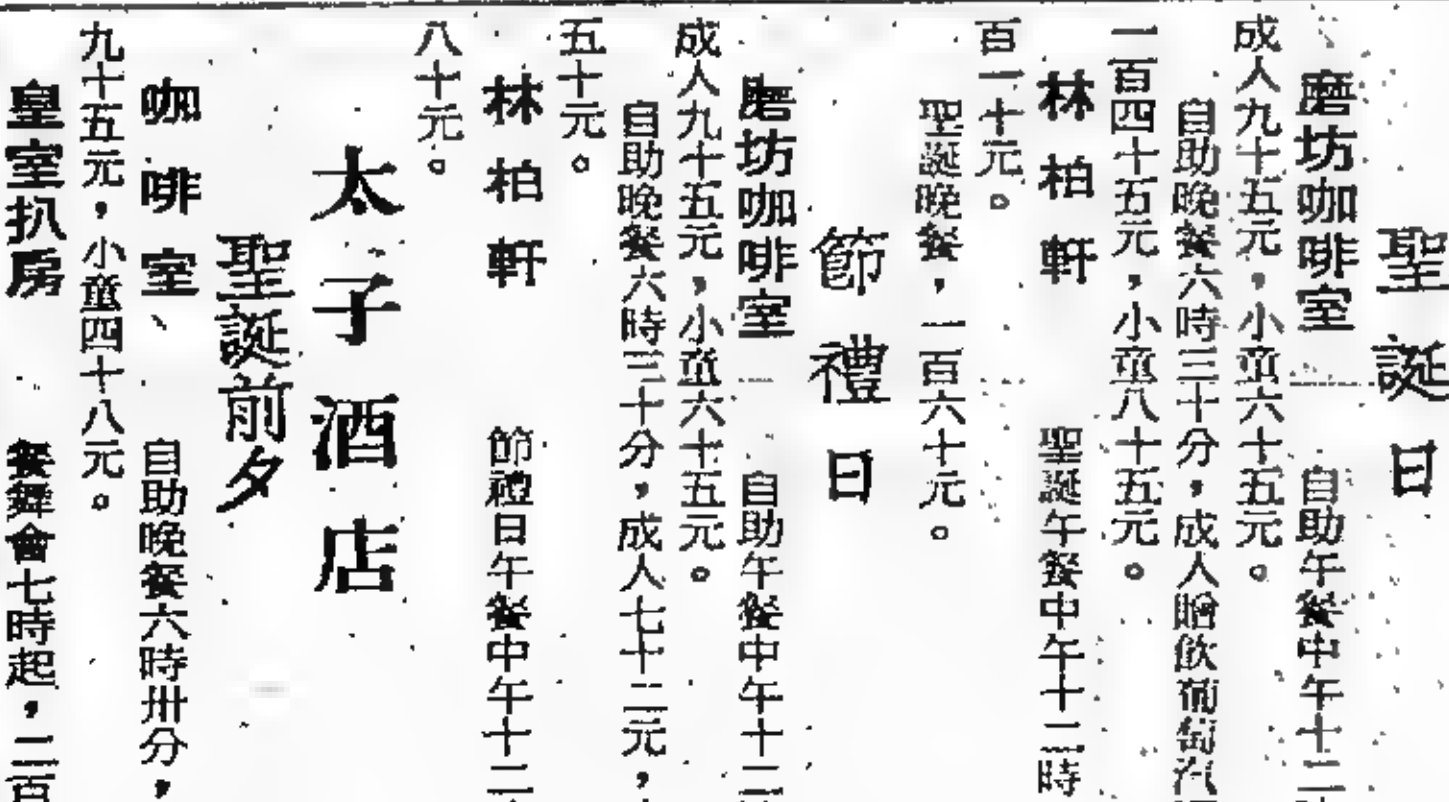 聖誕日
磨坊咖啡室 自助午餐中午十二
成人九十五元，小童六十五元。
自助晚餐六時三十分，成人贈飲葡萄汽
一百四十五元，小童八十五元。
林柏軒 聖誕午餐中午十二時
百一十元。
聖誕晚餐，一百六十元。
節禮日
磨坊咖啡室 自助午餐中午十二
成人九十五元，小童六十五元。
自助晚餐六時三十分，成人七十二元，
五十元。
林柏軒 節禮日午餐中午十二
八十元。
太子酒店
聖誕前夕
咖啡室、 自助晚餐六時卅分，
九十五元，小童四十八元。
皇室扒房 餐舞會七時起，二百